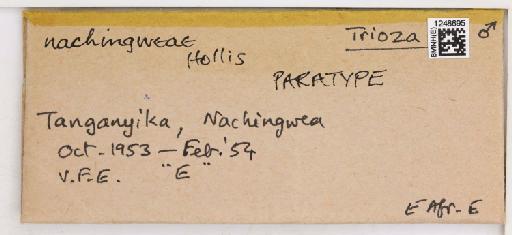 nachingweae Trioza ♂
Hollis
PARATYPE
Tanganyika, Nachingwea
Oct-1953 — Feb.'54
V.F.E. "E"
E Afr- E
BMNH(E)
1248695